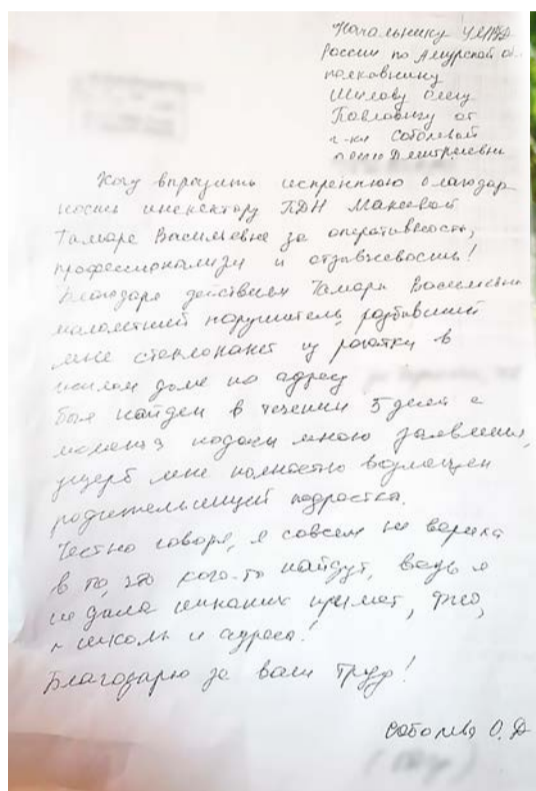 Начальнику УМВД
России по Амурской о
полковнику
Шилову Олегу
Павловичу от
г-ки Соболевой
Дмитриевны
Хочу выразить искреннюю благодар
ность инспектору ПДН Макеевой
Тамаре Васильевне за оперативность,
профессионализм и отзывчивость!
Благодаря действиям Тамары Васильевны
малолетний нарушитель, разбивший
мне стеклопакет из рогатки в
жилом доме по адресу
был найден в течении 5 дней с
момента подачи мною заявления,
ущерб мне полностью возмещен
родительницей подростка.
Честно говоря, я совсем не верила
в то, что кого-то найдут, ведь я
не дала никаких примет, ФИО,
школы и адреса!
Благодарю за ваш труд!
Соболева О.Д